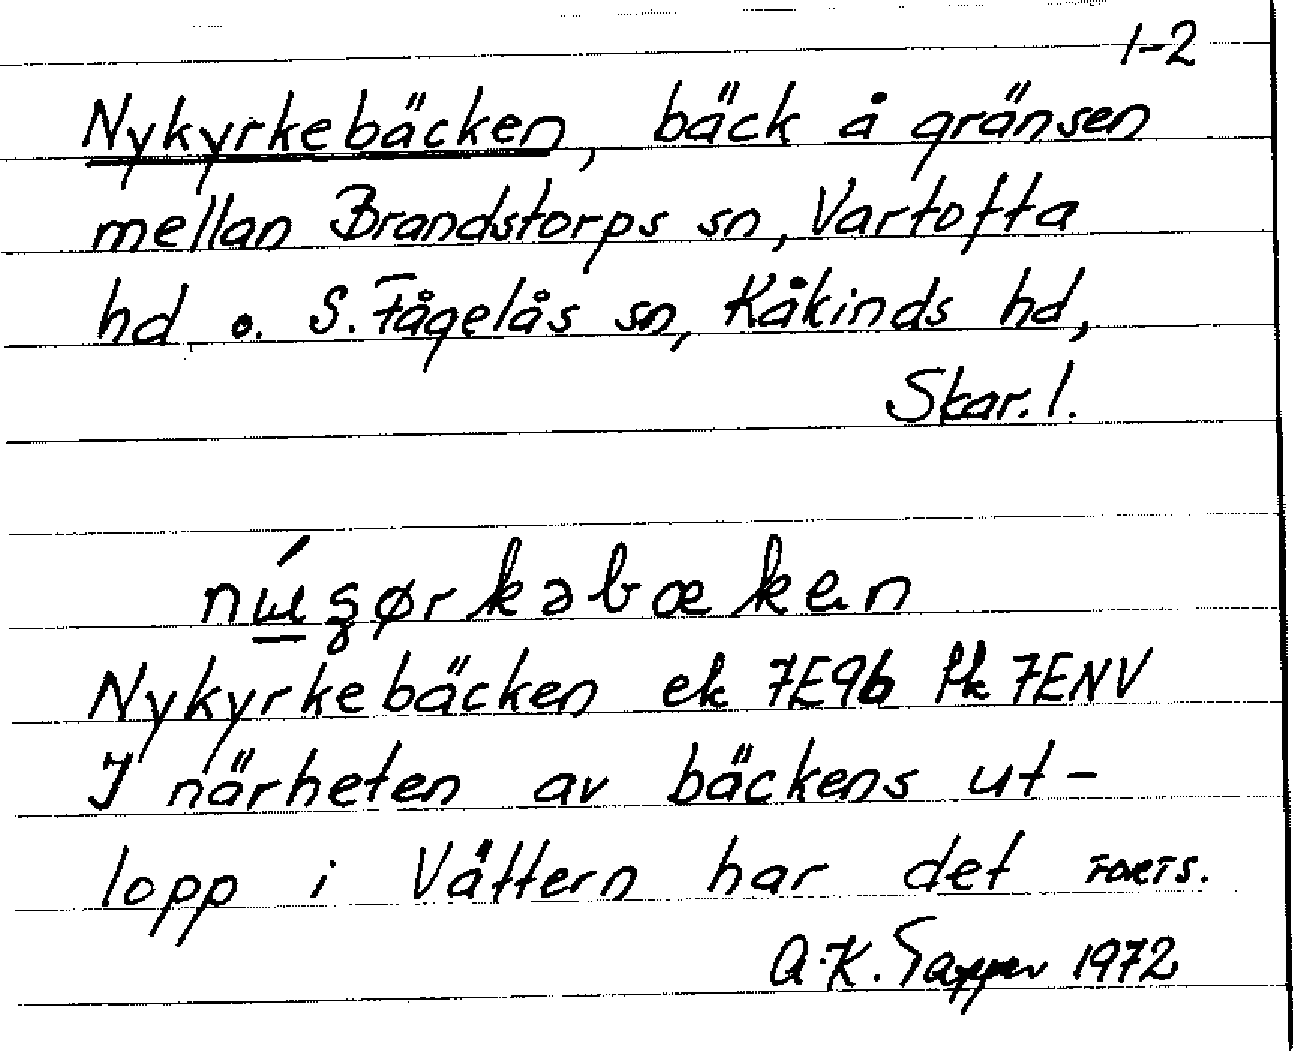 1-2
Nykyrkebäcken, bäck å gränsen
mellan Brandstorps sn, Vartofta
hd o. S. Fågelås sn, Kåkinds hd,
Skar. l.
Nykyrkebäcken ek 7E9b 7ENV
I närheten av bäckens ut-
lopp i Vättern har det FORTS.
A.K. Tapper 1972